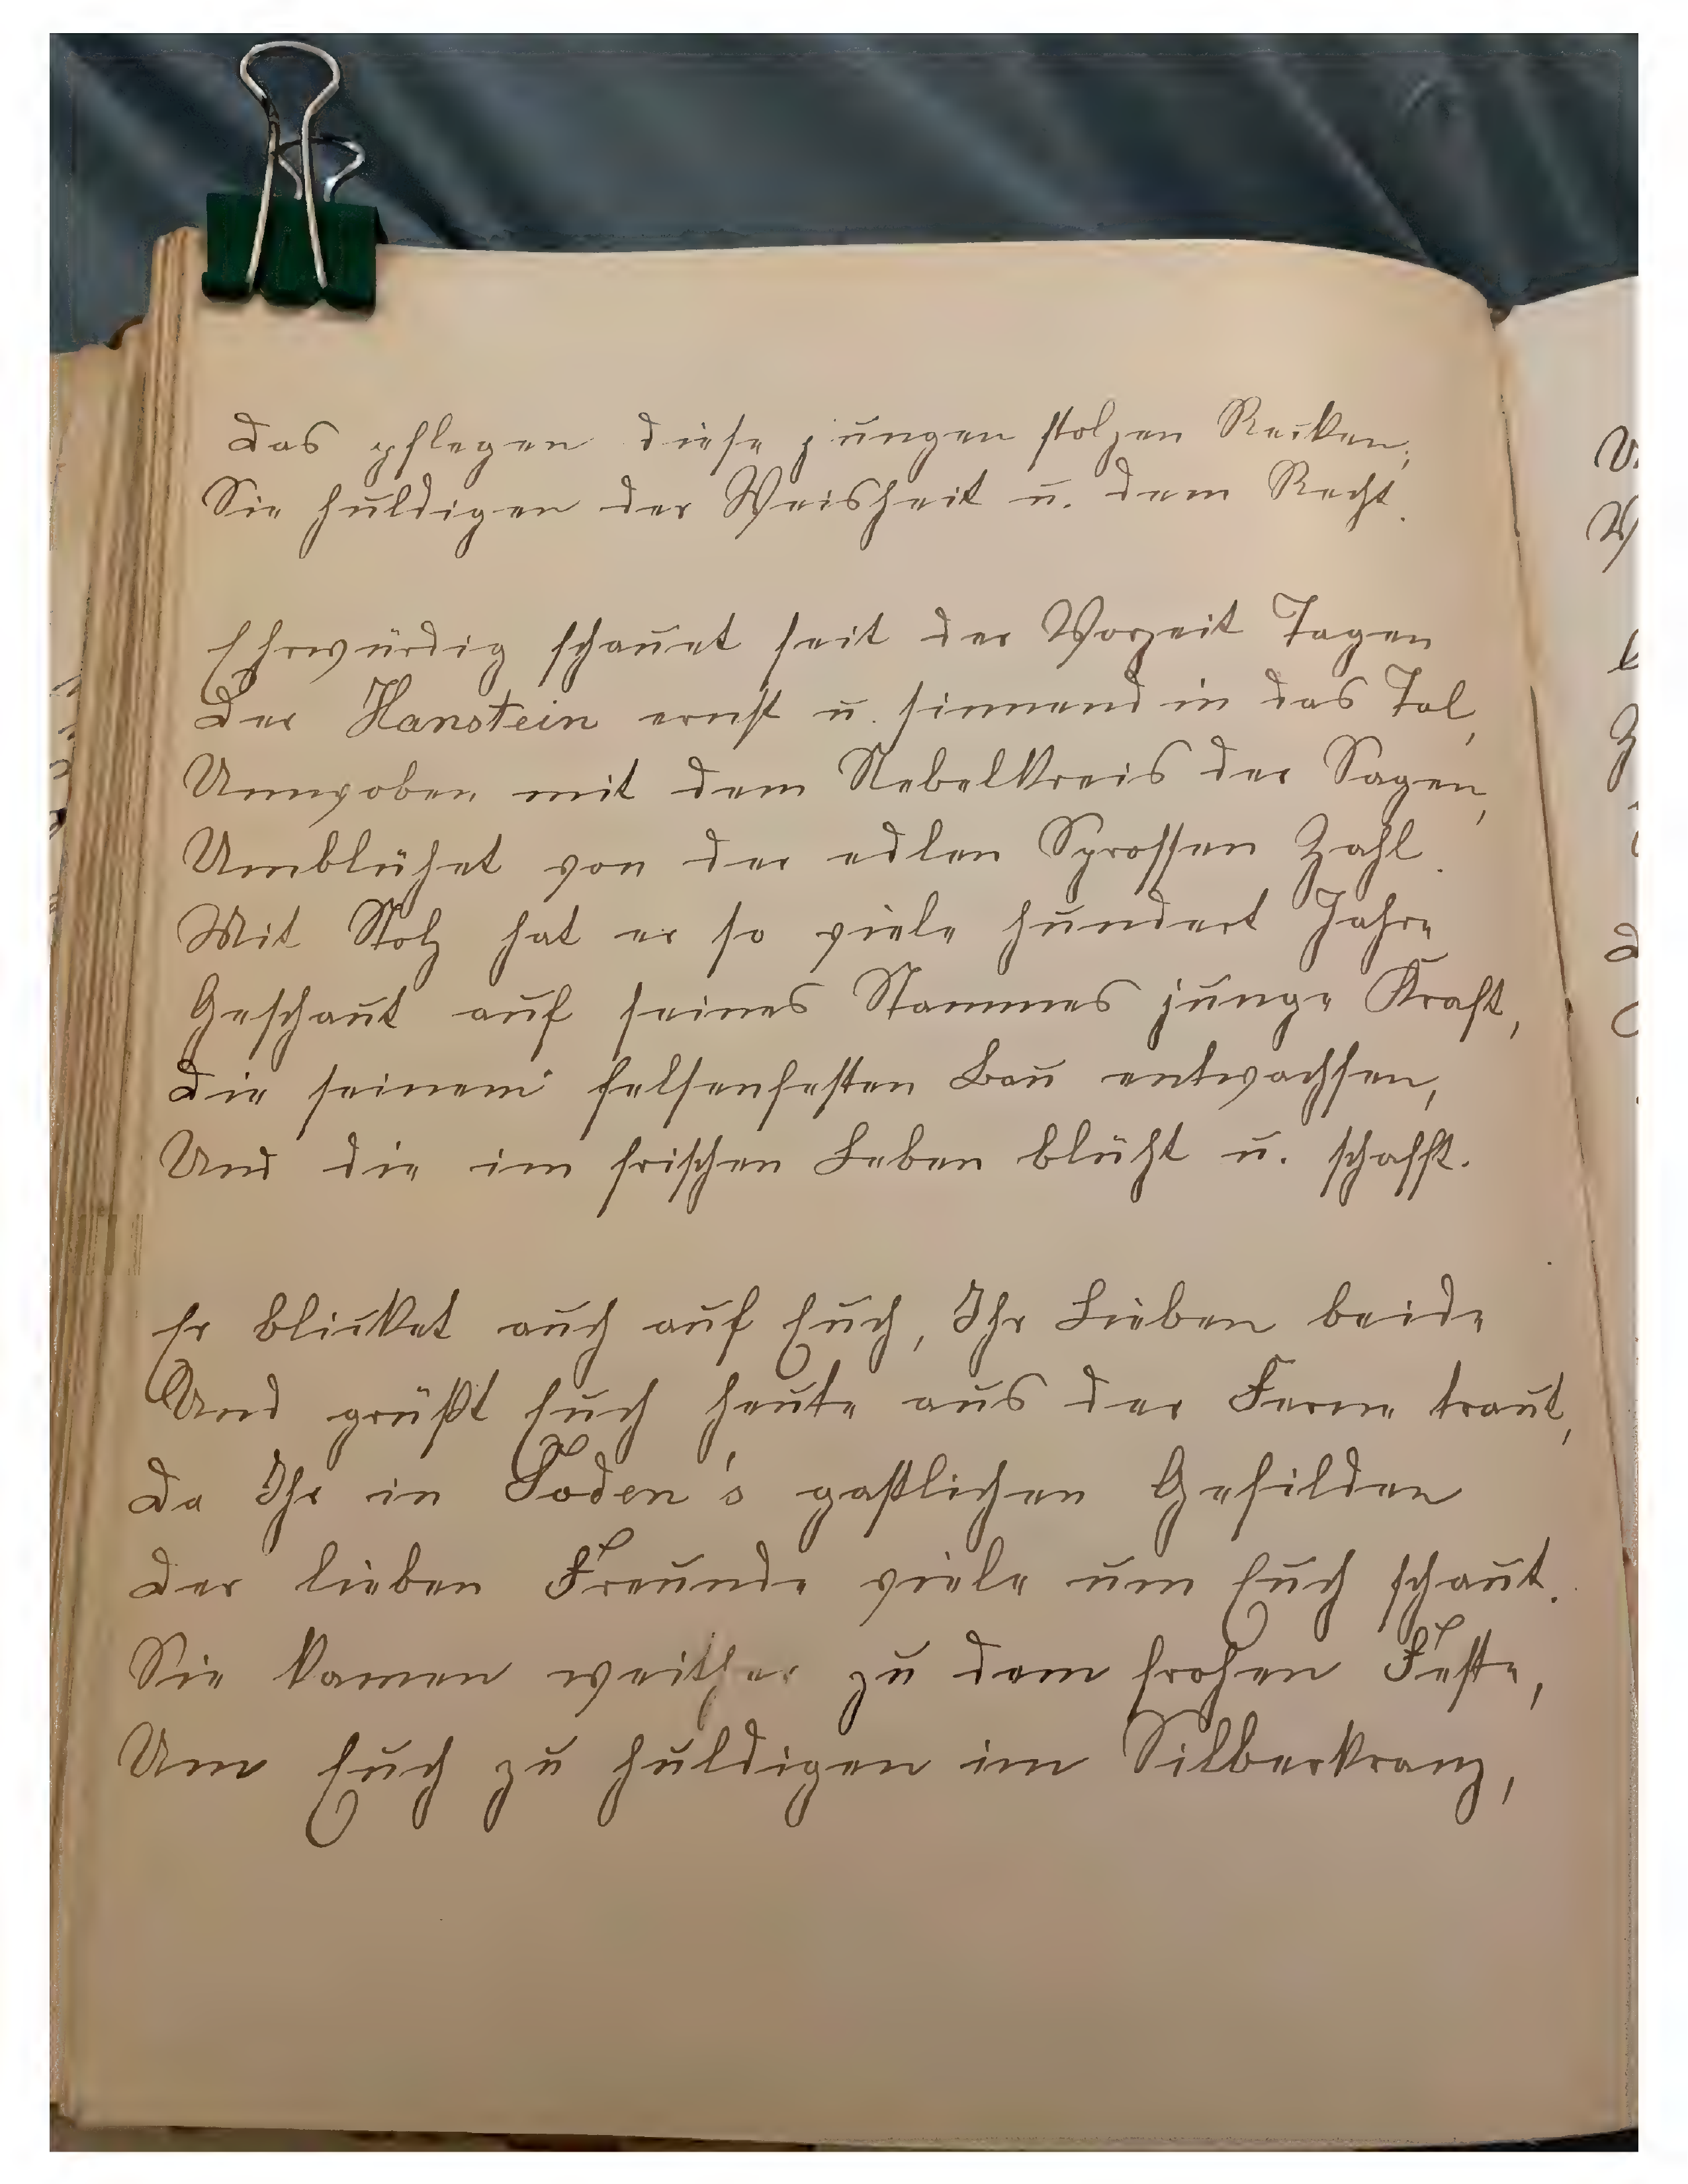 Das pflegen diese jungen stolzen Recken;
Sie huldigen der Weisheit u. dem Recht.
Ehrwürdig schauet seit der Vorzeit Tagen
Der Hanstein ernst u. sinnend in das Tal,
Umwoben mit dem Nebelkreis der Sagen,
Umblühet von der edlen Sprossen Zahl.
Mit Stolz hat er so viele hundert Jahre
Geschaut auf seines Stammes junge Kraft,
Die seinem felsenfesten Bau entwachsen,
Und die im frischen Leben blüht u. schafft.
Er blicket auch auf Euch, Ihr Lieben beide
Und grüßt Euch heute aus der Ferne traut,
Da Ihr in Soden's gastlichen Gefilden
Der lieben Freunde viele um Euch schaut.
Sie kamen weither zu dem frohen Feste,
Um Euch zu huldigen im Silberkranz,